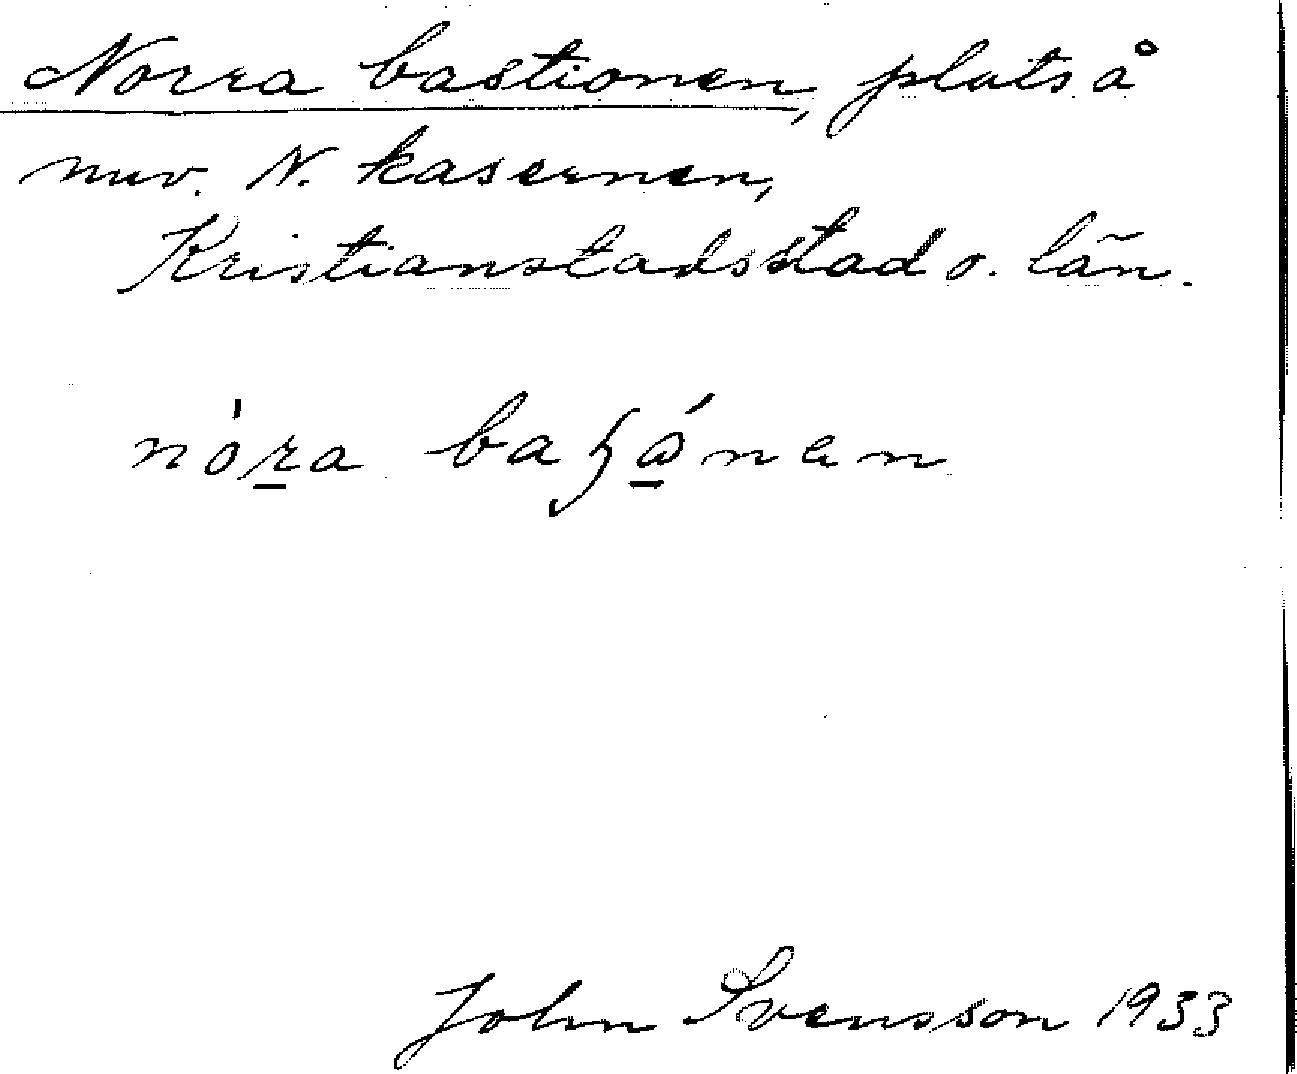 Norra bastionen, plats å
nuv. N. kasernen,
Kristianstads stad o. län.
nòra baʂónen
John Svensson 1933